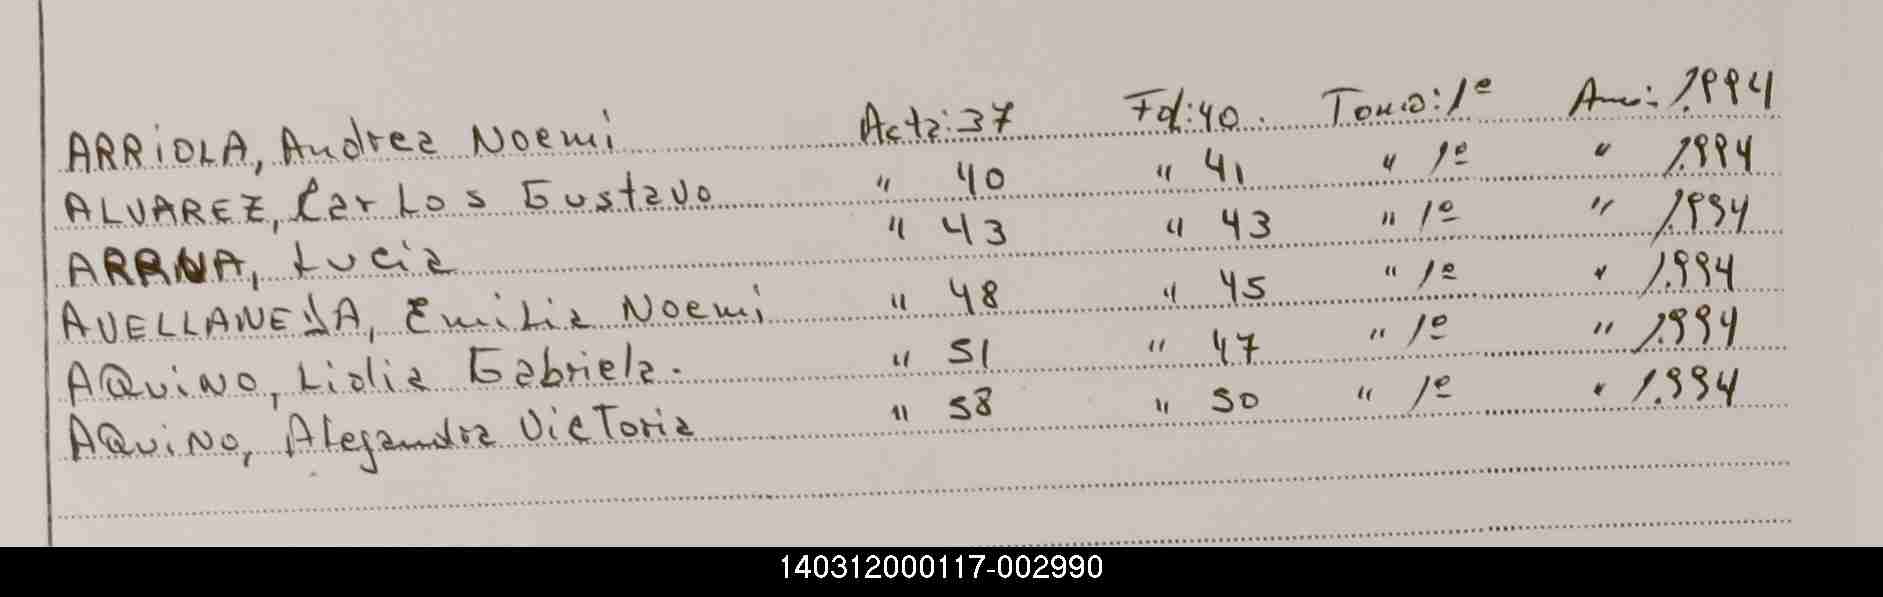 ARRiOLA, Andrea Noemi Acta: 37 Fol: 40. Tomo: 1º Año: 1.994
ALVAREZ, Carlos Gustavo " 40 " 41 " 1º " 1.994
Lucia " 43 " 43 " 1º " 1.994
AVELLANEDA, Emilia Noemi " 48 " 45 " 1º " 1.994
AQuiNO, Lidia Gabriela. " 51 " 47 " 1º " 1.994
AQuiNO, Alejandra Victoria " 58 " 50 " 1º " 1.994
140312000117-002990